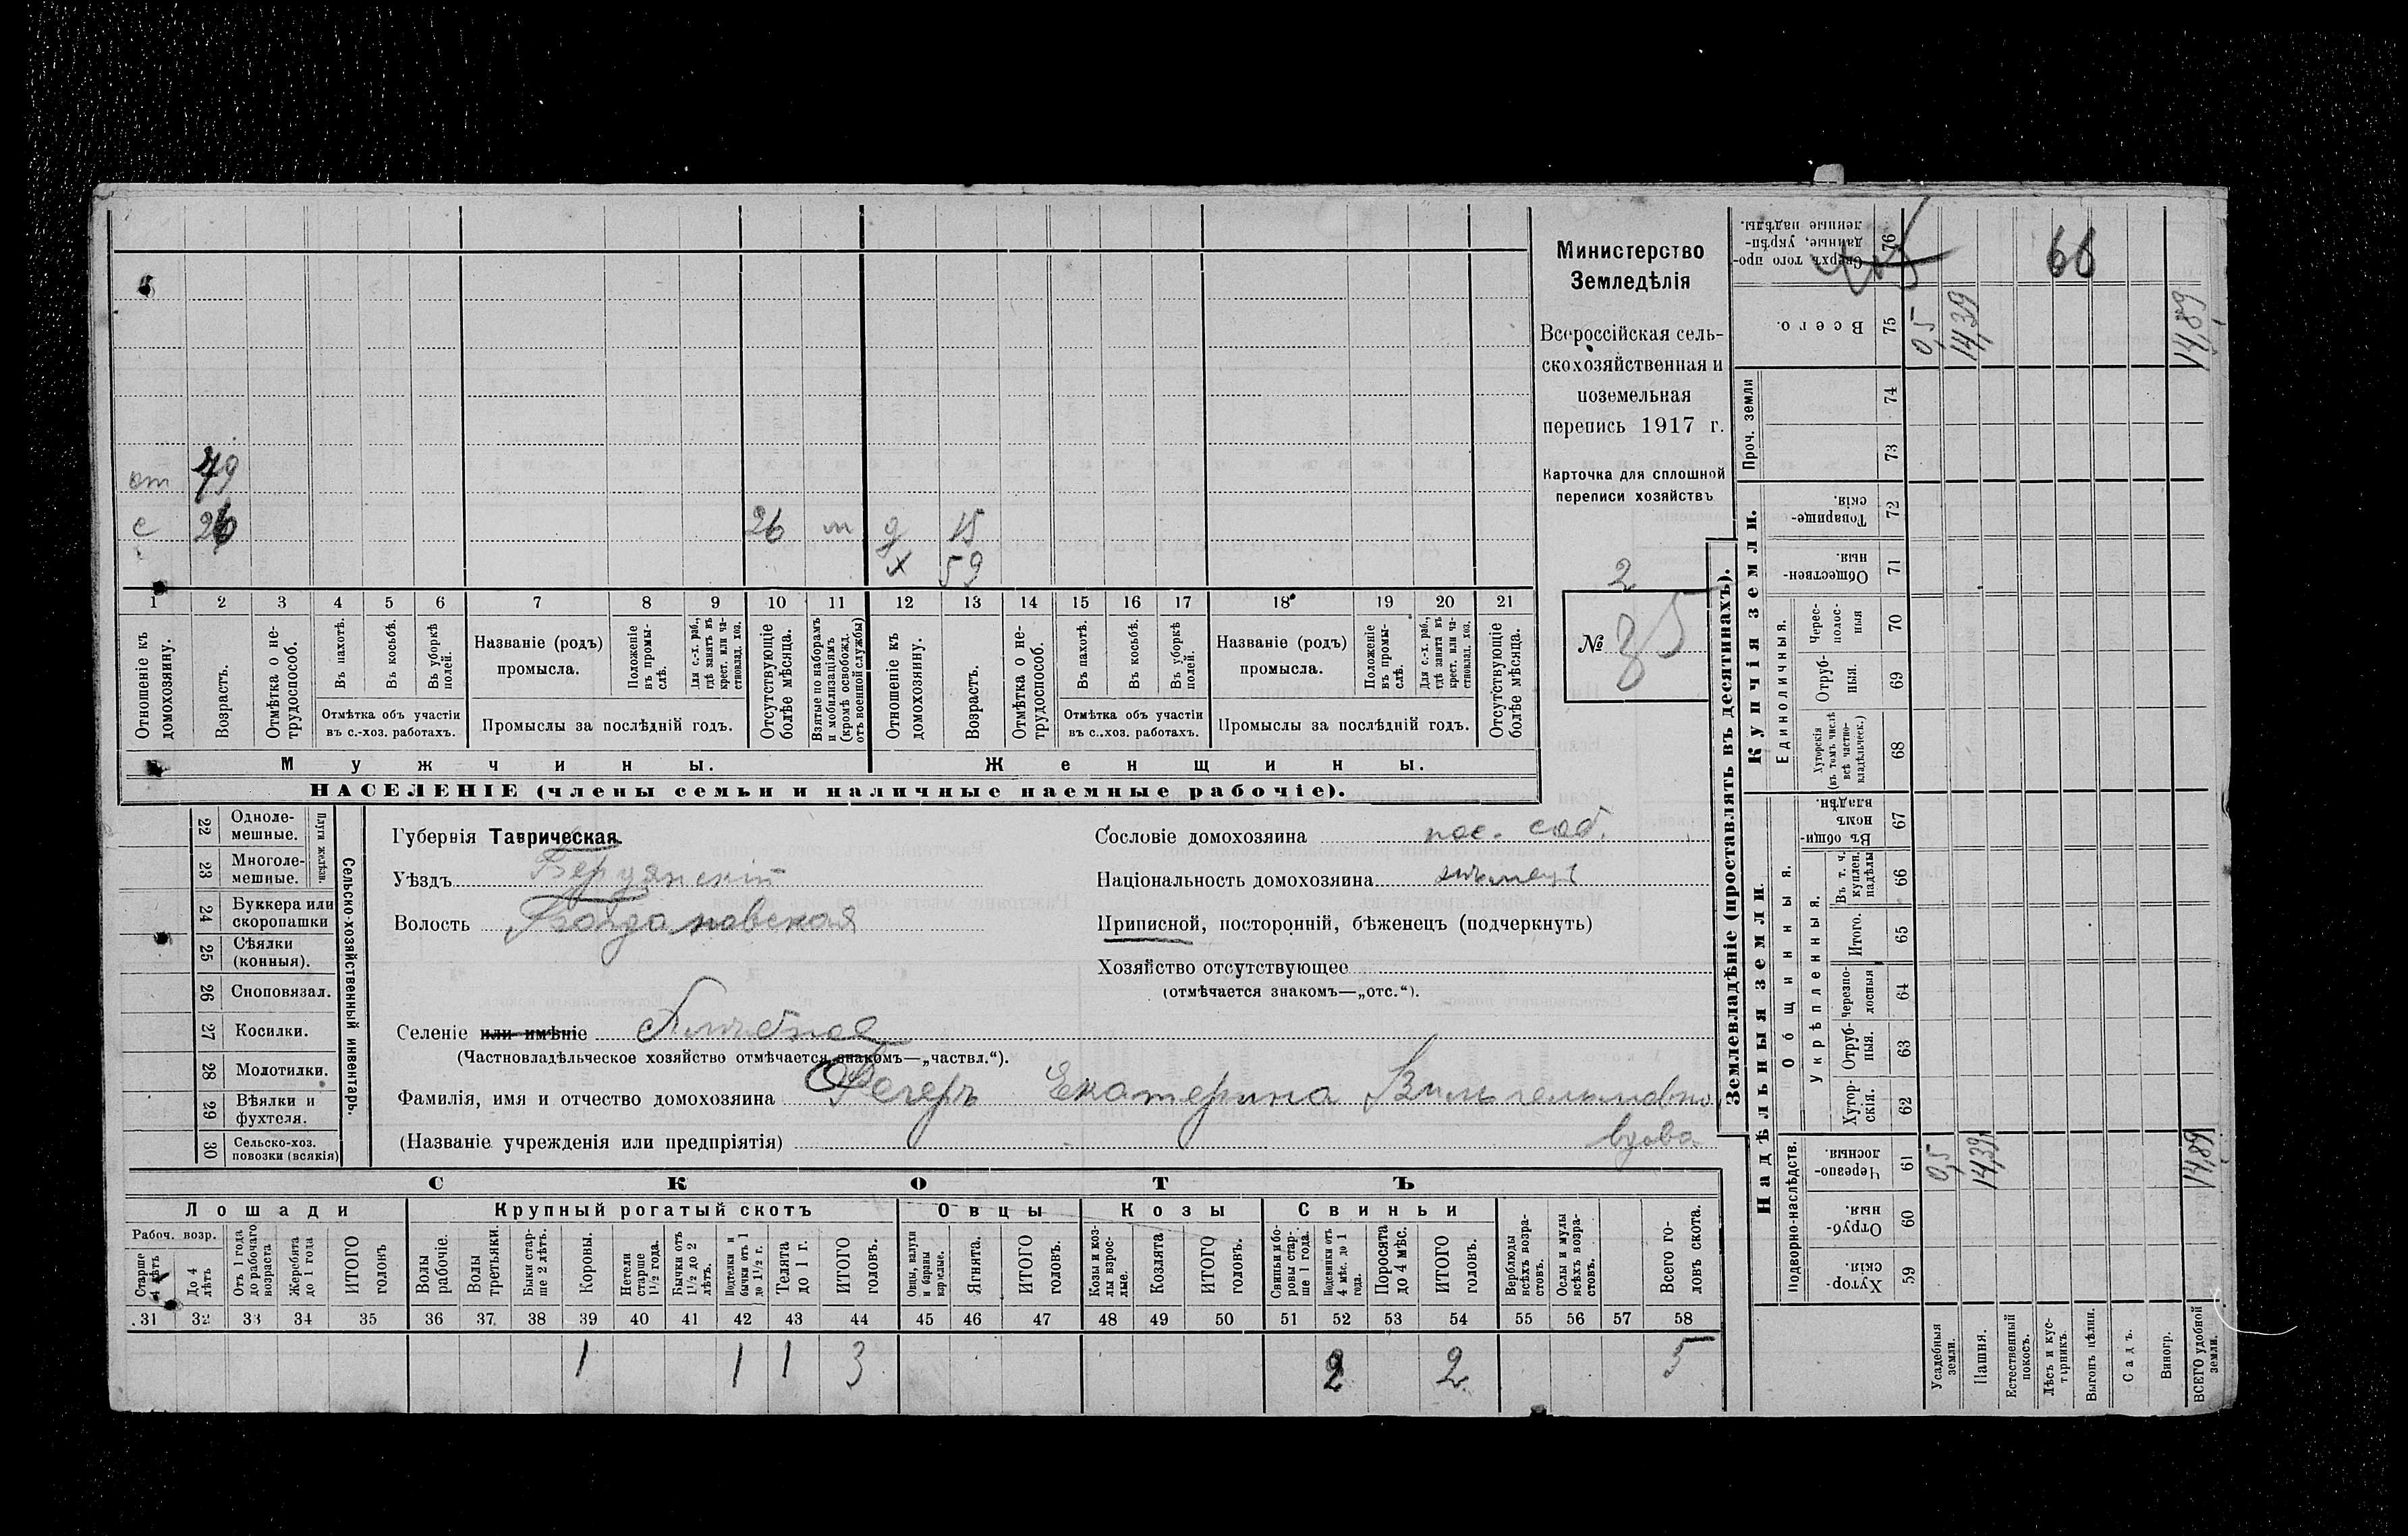 от 79
с 26 26 м д 15
х 59
1 2 3 4 5 6 7 8 9 10 11 12 13 14 15 16 17 18 19 20 21
Отношеніе къ домохозяину.
Возрастъ.
Отмѣтка о не-трудоспособ.
Въ пахотѣ.
Въ косьбѣ.
Въ уборкѣ полей.
Отмѣтка объ участіи въ с.-хоз. работахъ.
Названіе (родъ) промысла.
Положеніе въ промы-слѣ.
Для с.-х. раб., гдѣ занятъ въ крест. или ча-стновлад. хоз.
Промыслы за послѣдній годъ.
Отсутствующіе болѣе мѣсяца.
Взятые по наборамъ и мобилизаціямъ (кромѣ освобожд. отъ военной службы)
Отношеніе къ домохозяину.
Возрастъ.
Отмѣтка о не-трудоспособ.
Въ пахотѣ.
Въ косьбѣ.
Въ уборкѣ полей.
Отмѣтка объ участіи въ с.-хоз. работахъ.
Названіе (родъ) промысла.
Положеніе въ промы-слѣ.
Для с.-х. раб., гдѣ занята въ крест. или ча-стновлад. хоз.
Промыслы за послѣдній годъ.
Отсутствующіе болѣе мѣсяца.
Мужчины. Женщины.
НАСЕЛЕНІЕ (члены семьи и наличные наемные рабочіе).
Министерство
Земледѣлія
Всероссійская сель-
скохозяйственная и
поземельная
перепись 1917 г.
Карточка для сплошной
переписи хозяйствъ
2
№ 35
22 Одноле-мешные.
23 Многоле-мешные.
Плуги желѣзн.
24 Буккера или скоропашки
25 Сѣялки (конныя).
26 Сноповязал.
27 Косилки.
28 Молотилки.
29 Вѣялки и фухтеля.
30 Сельско-хоз. повозки (всякія)
Сельско-хозяйственный инвентарь.
Губернія Таврическая.
Уѣздъ Бердянскій
Волость Богдановская
Селеніе или имѣніе
(Частновладѣльческое хозяйство отмѣчается знакомъ—„частвл.“).
Фамилія, имя и отчество домохозяина Регеръ Екатерина Вильгельмовна
(Названіе учрежденія или предпріятія) вдова
Сословіе домохозяина пос. соб.
Національность домохозяина нѣмецъ
Приписной, посторонній, бѣженецъ (подчеркнуть)
Хозяйство отсутствующее
(отмѣчается знакомъ—„отс.“).
СКОТЪ
Лошади Крупный рогатый скотъ Овцы Козы Свиньи
Рабоч. возр.
Старше 4 лѣтъ
До 4 лѣтъ
Отъ 1 года до рабочаго возраста
Жеребята до 1 года
ИТОГО головъ
Волы рабочіе.
Волы третьяки.
Быки стар-ше 2 лѣтъ.
Коровы.
Нетели старше 1 1/2 года.
Бычки отъ 1 1/2 до 2 лѣтъ.
Подтелки и бычки отъ 1 до 1 1/2 г.
Телята до 1 г.
ИТОГО головъ.
Овцы, валухи и бараны взрослые.
Ягнята.
ИТОГО головъ.
Козы и коз-лы взрос-лые.
Козлята
ИТОГО головъ.
Свиньи и бо-ровы стар-ше 1 года.
Подсвинки отъ 4 мѣс. до 1 года.
Поросята до 4 мѣс.
ИТОГО головъ.
Верблюды всѣхъ возра-стовъ.
Ослы и мулы всѣхъ возра-стовъ.
Всего го-ловъ скота.
31 32 33 34 35 36 37 38 39 40 41 42 43 44 45 46 47 48 49 50 51 52 53 54 55 56 57 58
1 1 1 3 2 2 5
Землевладѣніе (проставлять въ десятинахъ).
Надѣльныя земли. Купчія земли. Проч. земли
Подворно-наслѣдств. Общинныя. Укрѣпленныя. Единоличныя.
Хутор-скія. 59
Отруб-ныя. 60
Черезпо-лосныя. 61
Хутор-скія. 62
Отруб-ныя. 63
Черезпо-лосныя 64
Итого. 65
Въ т. ч. куплен. надѣлы 66
Въ общин-номъ владѣн. 67
Хуторскія (въ томъ числѣ всѣ частно-владѣльческ.) 68
Отруб-ныя. 69
Черес-полос-ныя 70
Обществен-ныя. 71
Товарище-скія. 72
73
74
Всего. 75
Сверхъ того про-данные, укрѣп-ленные надѣлы. 76
Усадебныя земли. 0,5 0,5
Пашня. 14,39 14,39
Естественный покосъ.
Лѣсъ и кус-тарникъ.
Выгонъ цѣлин. 66
Садъ.
Виногр.
ВСЕГО удобной земли. 14,89 14,89